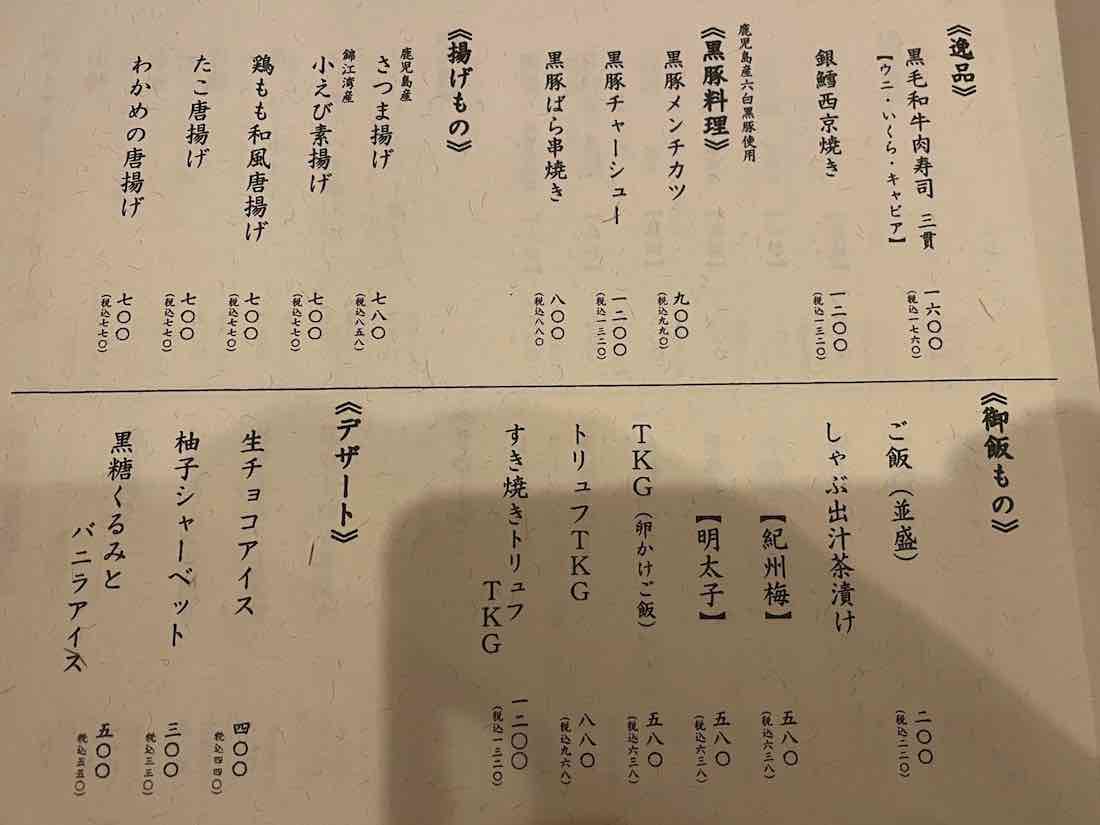 《逸品》
黒毛和牛肉寿司 三貫
【ウニ・いくら・キャビア】
一六〇〇
(税込一七六〇)
銀鱈西京焼き
一二〇〇
(税込一三二〇)
鹿児島産六白黒豚使用
《黒豚料理》
黒豚メンチカツ
九〇〇
(税込九九〇)
黒豚チャーシュー
一二〇〇
(税込一三二〇)
黒豚ばら串焼き
八〇〇
(税込八八〇)
《揚げもの》
鹿児島産
さつま揚げ
七八〇
(税込八五八)
錦江湾産
小えび素揚げ
七〇〇
(税込七七〇)
鶏もも和風唐揚げ
七〇〇
(税込七七〇)
たこ唐揚げ
七〇〇
(税込七七〇)
わかめの唐揚げ
七〇〇
(税込七七〇)
《御飯もの》
ご飯(並盛)
二〇〇
(税込二二〇)
しゃぶ出汁茶漬け
【紀州梅】
五八〇
(税込六三八)
【明太子】
五八〇
(税込六三八)
TKG(卵かけご飯)
五八〇
(税込六三八)
トリュフTKG
八八〇
(税込九六八)
すき焼きトリュフ
TKG
一二〇〇
(税込一三二〇)
《デザート》
生チョコアイス
四〇〇
(税込四四〇)
柚子シャーベット
三〇〇
(税込三三〇)
黒糖くるみと
バニラアイス
五〇〇
(税込五五〇)